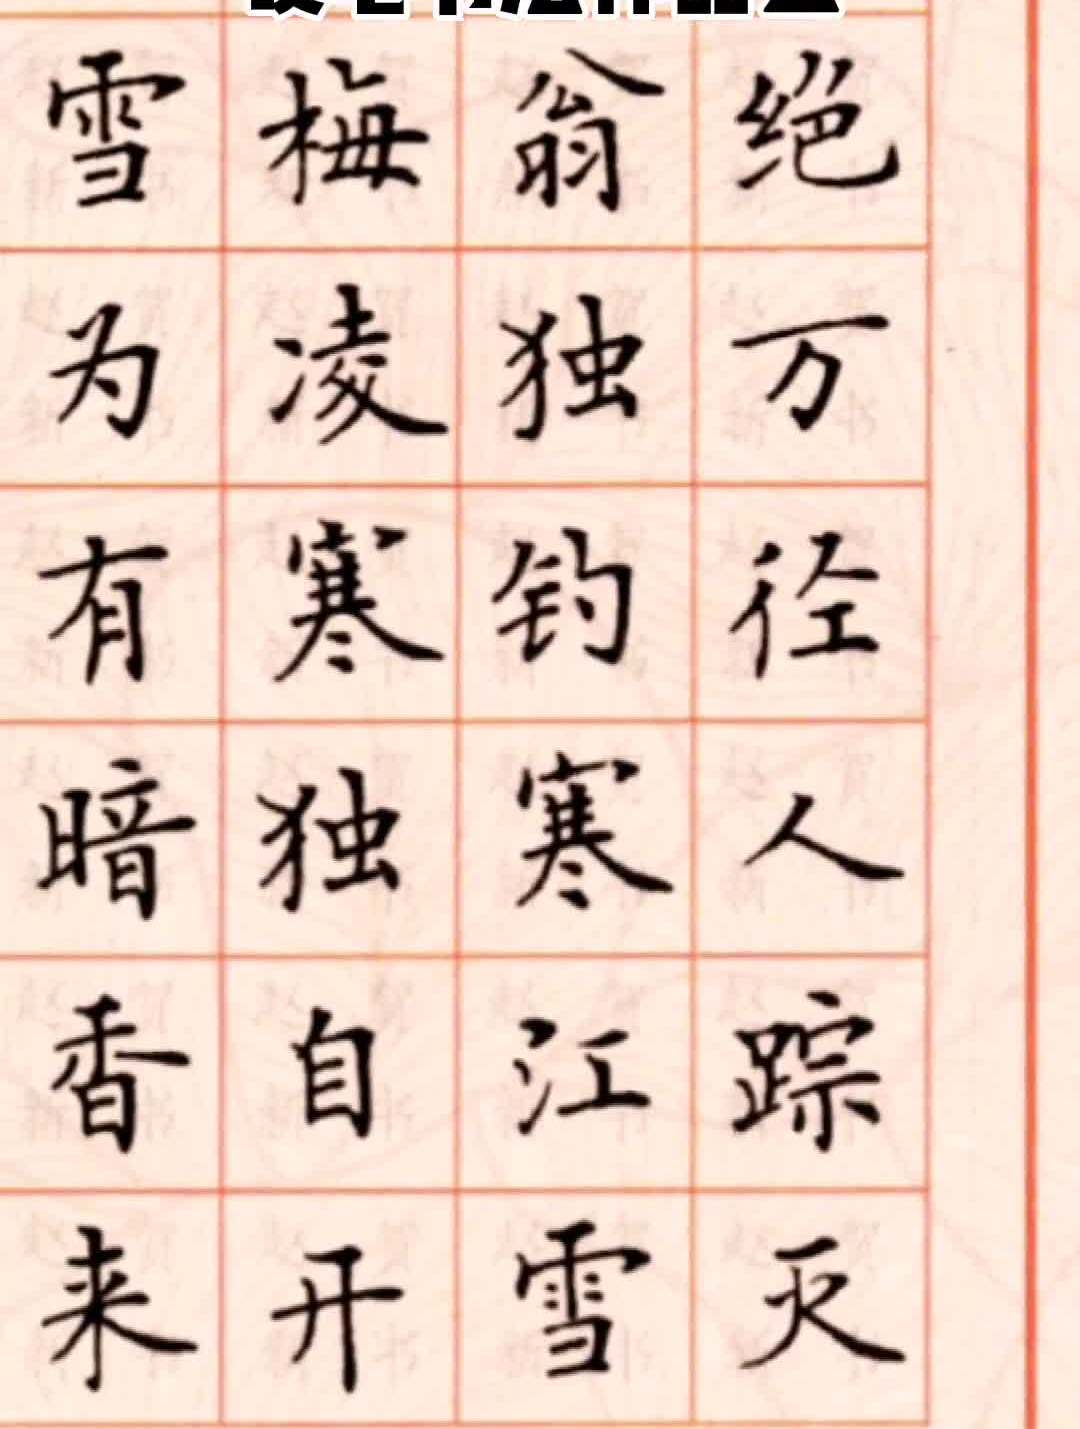 绝万径人踪灭
翁独钓寒江雪
梅凌寒独自开
雪为有暗香来